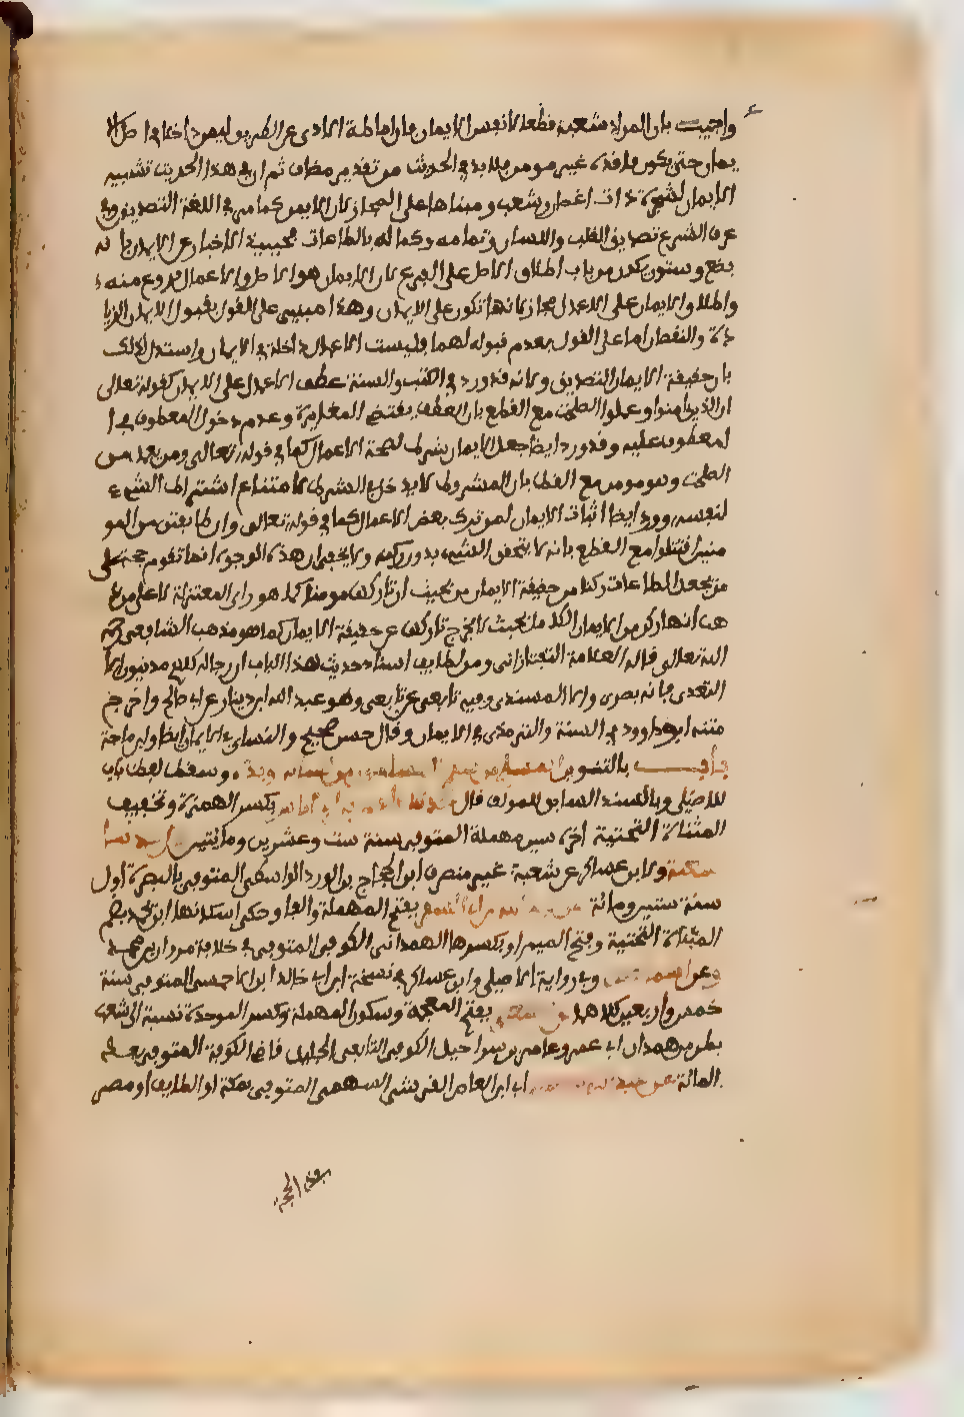 واجيب بان المراد شعبة قطعا لا نفس الايمان فان اماطة الاذى عن الطريق ليس داخلا في اصل الا
يمان حتى يكون فاقده غير مومن فلا بد في الحديث من تقدير مضاف ثم ان في هذا الحديث تشبيه
الايمان بشجرة ذات اغصان وشعب ومبناها على المجاز لان الايمان كما مر في اللغة التصديق وفي
عرف الشرع تصديق القلب واللسان وتمامه وكماله بالطاعات فحينئذ الاخبار عن الايمان بانه
بضع وستون يكون من باب اطلاق الاصل على الفرع لان الايمان هو الاصل والاعمال فروع منه
واطلاق الايمان على الاعمال مجاز لانها تكون على الايمان وهذا مبني على القول بقبول الايمان الزيا
دة والنقصان اما على القول بعدم قبوله لهما فليست الاعمال داخلة في الايمان واستدل لذلك
بان حقيقة الايمان التصديق ولانه قد ورد في الكتب والسنة عطف الاعمال على الايمان كقوله تعالى
ان الذين امنوا وعملوا الصلحت مع القطع بان العطف يقتضي المغايرة وعدم دخول المعطوف في ا
لمعطوف عليه وقد ورد ايضا جعل الايمان شرط لصحة الاعمال كما في قوله تعالى ومن يعمل من
الصلحت وهو مومن مع القطع بان المشروط لا يدخل في الشرط لامتناع اشتراط الشيء
لنفسه وورد ايضا اثبات الايمان لمن ترك بعض الاعمال كما في قوله تعالى وان طايفتن من المو
منين اقتتلوا مع القطع بانه لا يتحقق الشيء بدون ركنه ولا يخفى ان هذه الوجوه انما تقوم حجة على
من يجعل الطاعات ركنا من حقيقة الايمان من حيث ان تاركها مومنا كما هو راي المعتزلة لا على من ذ
هب انها ركن من الايمان الكامل بحيث لا يخرج تاركها عن حقيقة الايمان كما هو مذهب الشافعي رحمه
الله تعالى قاله العلامة التفتازاني ومن لطايف اسناد حديث هذا الباب ان رجاله كلهم مدنيون الا
العقدي فانه بصري والا المسندي وفيه تابعي عن تابعي وهو عبد الله ابن دينار عن ابي صالح واخرج
متنه ابو داوود في السنة والترمذي في الايمان وقال حسن صحيح والنسائي في الايمان ايضا وابن ماجة
باب بالتنوين المسلم من سلم المسلمون من لسانه ويده وسقط لفظ باب
للاصيلي وبالسند السابق للمولف قال حدثنا ادم بن ابي اياس بكسر الهمزة وتخفيف
المثناة التحتية اخره سين مهملة المتوفى سنة ست وعشرين ومائتين قال حدثنا
شعبة ولابن عساكر عن شعبة غير منصرف ابن الحجاج بن الورد الواسطي المتوفى بالبصرة اول
سنة ستين ومائة عن عبد الله بن ابي السفر بفتح المهملة والفا وحكي اسكانها ابن يحمد بضم
المثناة التحتية وفتح الميم او بكسرها الهمداني الكوفي المتوفى في خلافة مروان بن محمد
وعن اسمعيل وفي رواية الاصيلي وابن عساكر في نسخة ابن ابي خالد الاحمسي المتوفى سنة
خمس واربعين كلاهما عن الشعبي بفتح المعجمة وسكون المهملة وكسر الموحدة نسبة الى شعب
بطن من همدان ابي عمرو عامر بن شراحيل الكوفي التابعي الجليل قاضي الكوفة المتوفى بعد
المائة عن عبد الله بن عمرو ابن العاص القرشي السهمي المتوفى بمكة او الطايف او مصر